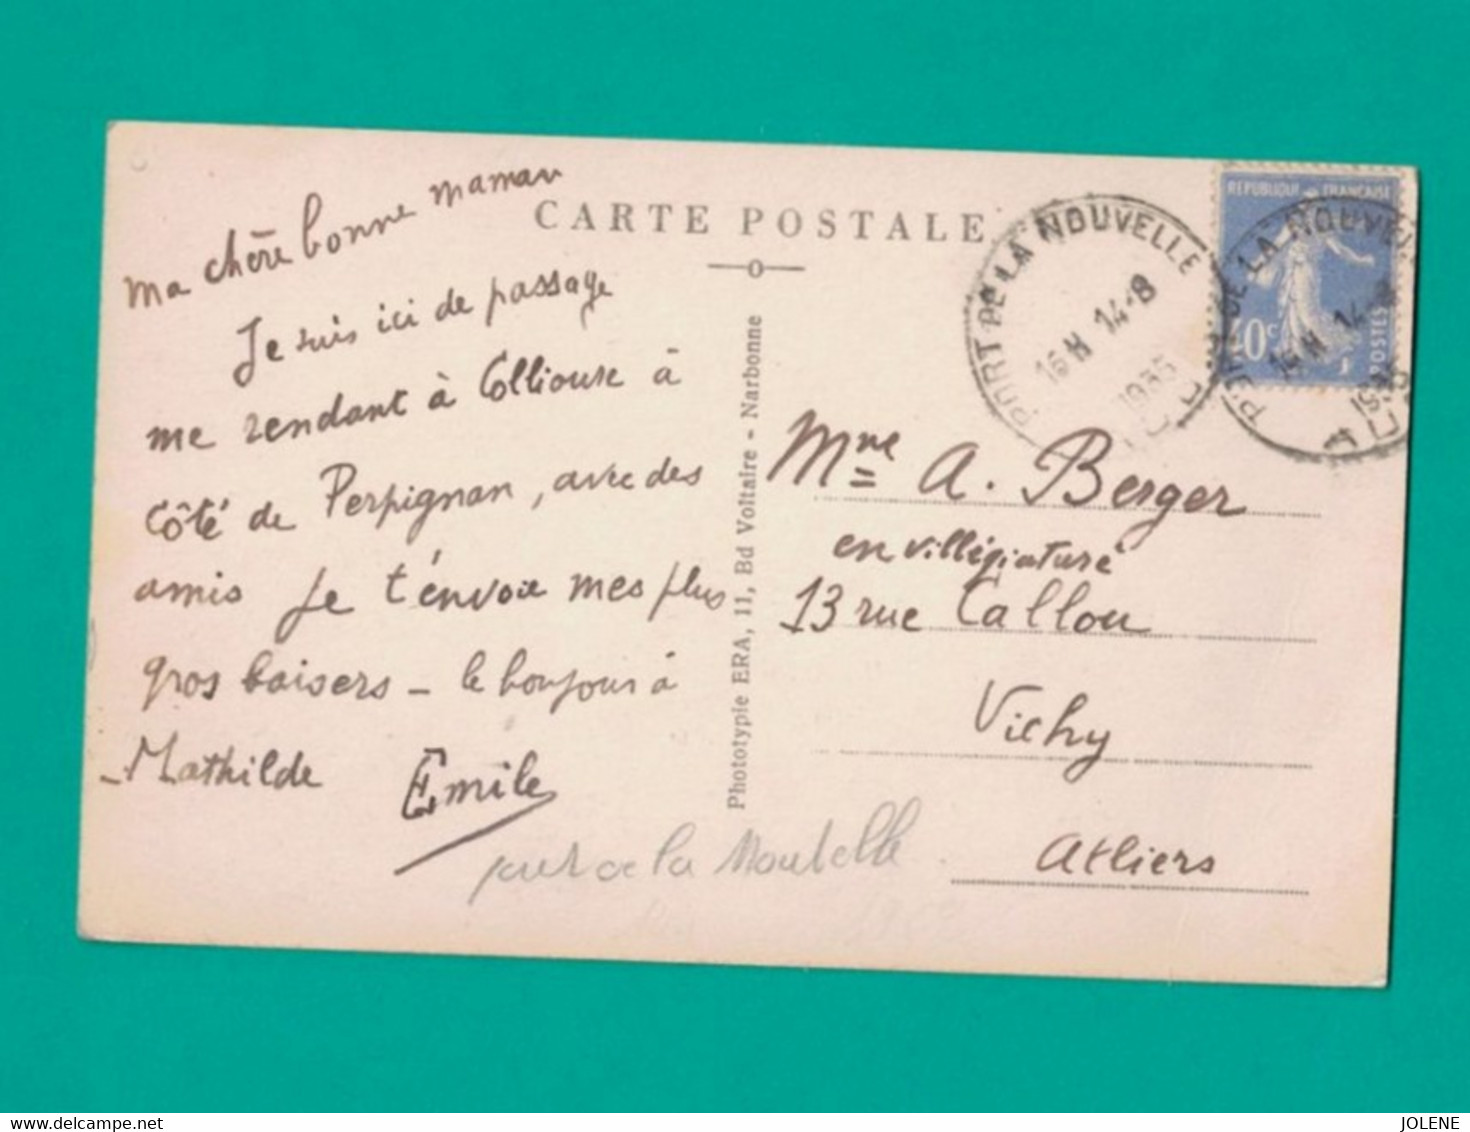 ma chère bonne maman
Je suis ici de passage
me rendant à Colliouse à
côté de Perpignan, avec des
amis Je t'envoie mes plus
gros baisers - le bonjour à
- Mathilde Emile
port de la Nouvelle
CARTE POSTALE
Phototypie ERA, 11, Bd Voltaire - Narbonne
PORT DE LA NOUVELLE
16 H 14-8
1935
REPUBLIQUE FRANÇAISE
40c
POSTES
DE LA NOUVEL
16 H 14-8
1935
Mme A. Berger
en villégiature
13 rue Callou
Vichy
Alliers
JOLENE